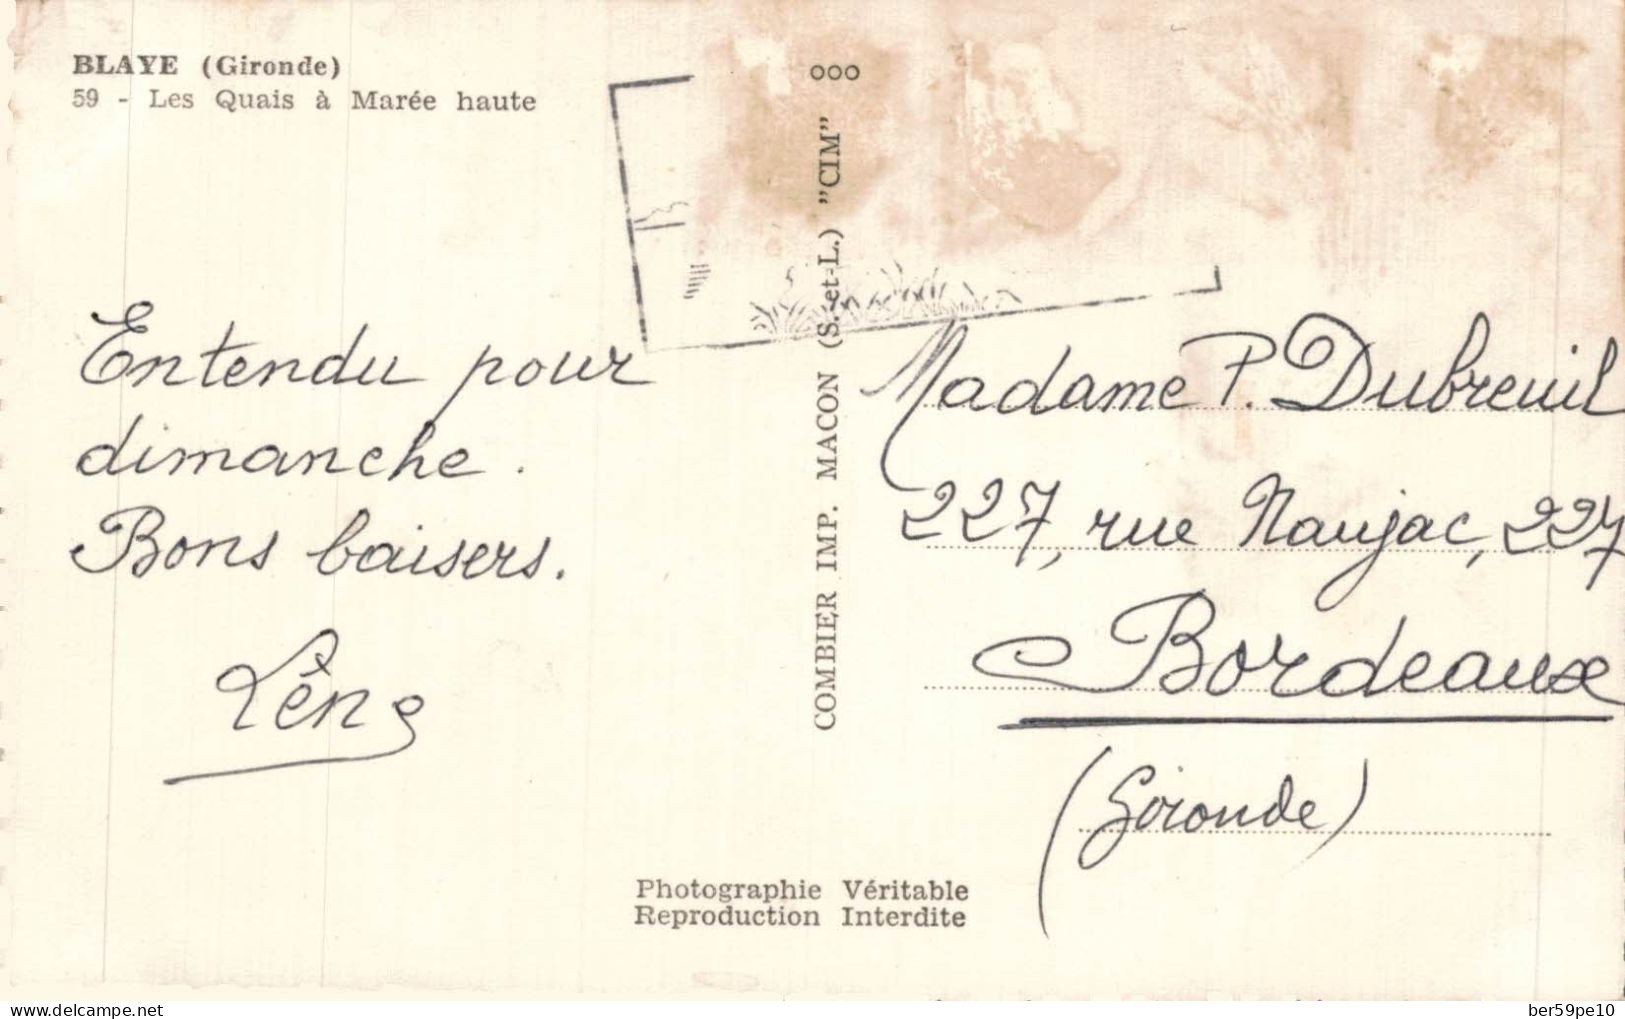 BLAYE (Gironde)
59 - Les Quais à Marée haute
Entendu pour
dimanche.
Bons baisers.
COMBIER IMP. MACON (S.-et-L.) "CIM" ooo
Madame P. Dubreuil
227, rue Naujac, 227
Bordeaux
(Gironde)
Photographie Véritable
Reproduction Interdite
www.delcampe.net
ber59pe10